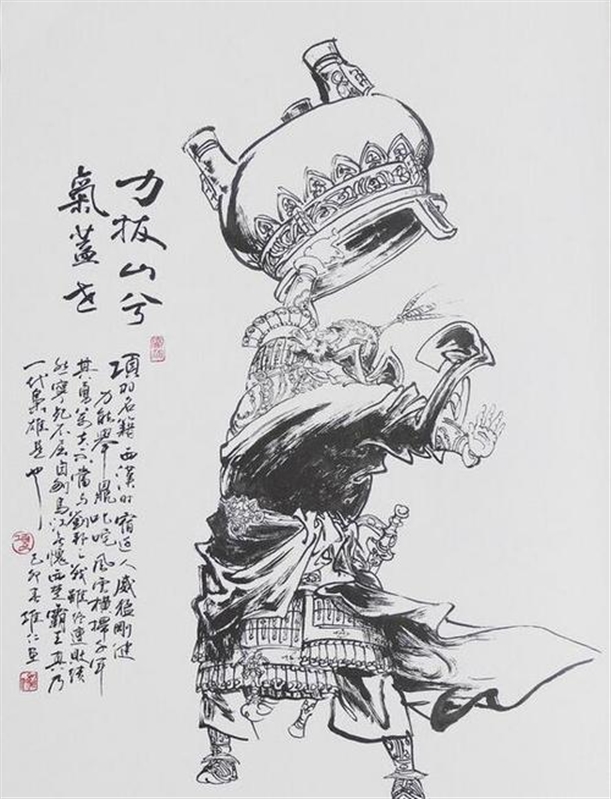 力拔山兮
氣蓋世
項羽名籍西漢时宿迁人威猛剛健
力能舉鼎叱咤風雲橫掃千軍
其勇万夫不當与劉邦之战雖终連敗績
然寧死不屈自刎烏江無愧西楚霸王真乃
一代梟雄是也
己卯春雄仁画